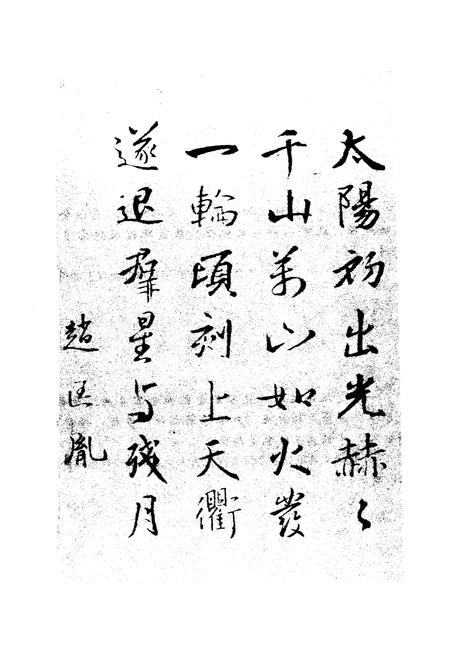 太陽初出光赫々
千山萬山如火發
一輪頃刻上天衢
逐退群星与残月
趙匡胤